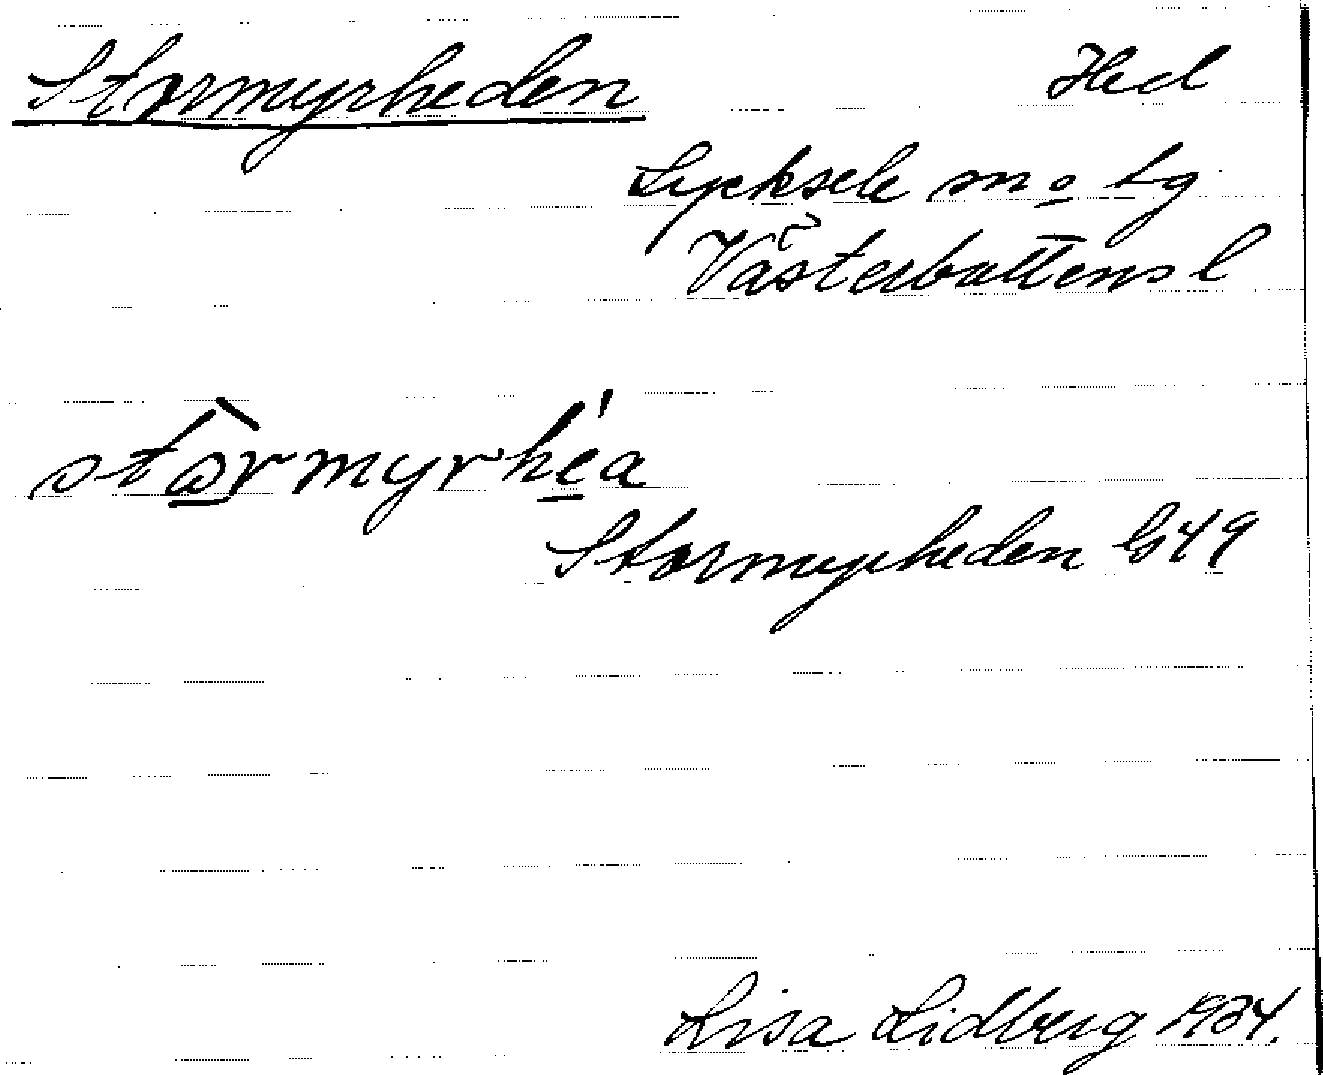 Stormyrheden Hed
Lycksele sn o tg
Västerbottens l
stɷ̀rmyrhe̲'a
Stormyrheden G49
Lisa Lidberg 1934.